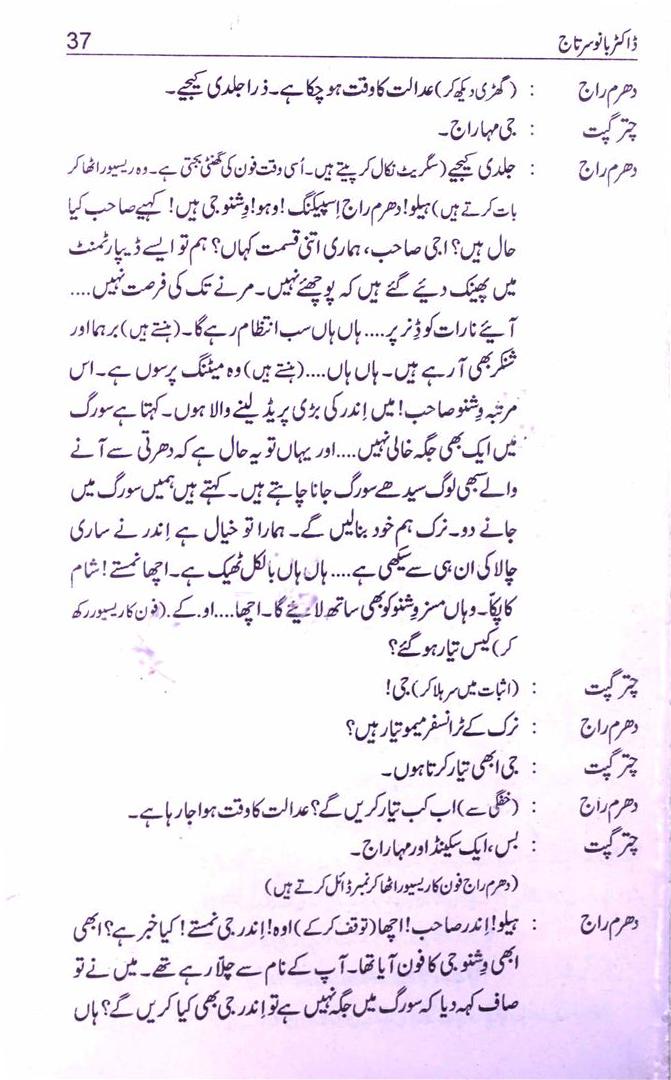 ڈاکٹر بانو سرتاج 37
دھرم راج : (گھڑی دیکھ کر) عدالت کا وقت ہو چکا ہے۔ ذرا جلدی کیجیے۔
چتر گپت : جی مہاراج۔
دھرم راج : جلدی کیجیے (سگریٹ نکال کر پیتے ہیں۔ اُسی وقت فون کی گھنٹی بجتی ہے۔ وہ ریسیور اٹھا کر
بات کرتے ہیں) ہیلو! دھرم راج اِسپیکنگ! وہو! وِشنو جی ہیں! کہیے صاحب کیا
حال ہیں؟ اجی صاحب، ہماری اتنی قسمت کہاں؟ ہم تو ایسے ڈیپارٹمنٹ
میں پھینک دئیے گئے ہیں کہ پوچھئے نہیں۔ مرنے تک کی فرصت نہیں....
آیئے نا رات کو ڈِنر پر.... ہاں ہاں سب انتظام رہے گا۔ (ہنستے ہیں) برہما اور
شنکر بھی آ رہے ہیں۔ ہاں ہاں.... (ہنستے ہیں) وہ میٹنگ پرسوں ہے۔ اس
مرتبہ وِشنو صاحب! میں اِندر کی بڑی پریڈ لینے والا ہوں۔ کہتا ہے سورگ
میں ایک بھی جگہ خالی نہیں.... اور یہاں تو یہ حال ہے کہ دھرتی سے آنے
والے سبھی لوگ سیدھے سورگ جانا چاہتے ہیں۔ کہتے ہیں ہمیں سورگ میں
جانے دو۔ نرک ہم خود بنا لیں گے۔ ہمارا تو خیال ہے اِندر نے ساری
چالاکی ان ہی سے سیکھی ہے.... ہاں ہاں بالکل ٹھیک ہے۔ اچھا نمستے! شام
کا پکّا۔ وہاں مسز وِشنو کو بھی ساتھ لایئے گا۔ اچھا.... او.کے. (فون کا ریسیور رکھ
کر) کیس تیار ہو گئے؟
چتر گپت : (اثبات میں سر ہلا کر) جی!
دھرم راج : نرک کے ٹرانسفر میمو تیار ہیں؟
چتر گپت : جی ابھی تیار کرتا ہوں۔
دھرم راج : (خفگی سے) اب کب تیار کریں گے؟ عدالت کا وقت ہوا جا رہا ہے۔
چتر گپت : بس، ایک سکینڈ اور مہاراج۔
(دھرم راج فون کا ریسیور اٹھا کر نمبر ڈائل کرتے ہیں)
دھرم راج : ہیلو! اِندر صاحب! اچھا (توقف کر کے) اوہ! اِندر جی نمستے! کیا خبر ہے؟ ابھی
ابھی وِشنو جی کا فون آیا تھا۔ آپ کے نام سے چلّا رہے تھے۔ میں نے تو
صاف کہہ دیا کہ سورگ میں جگہ نہیں ہے تو اِندر جی بھی کیا کریں گے؟ ہاں